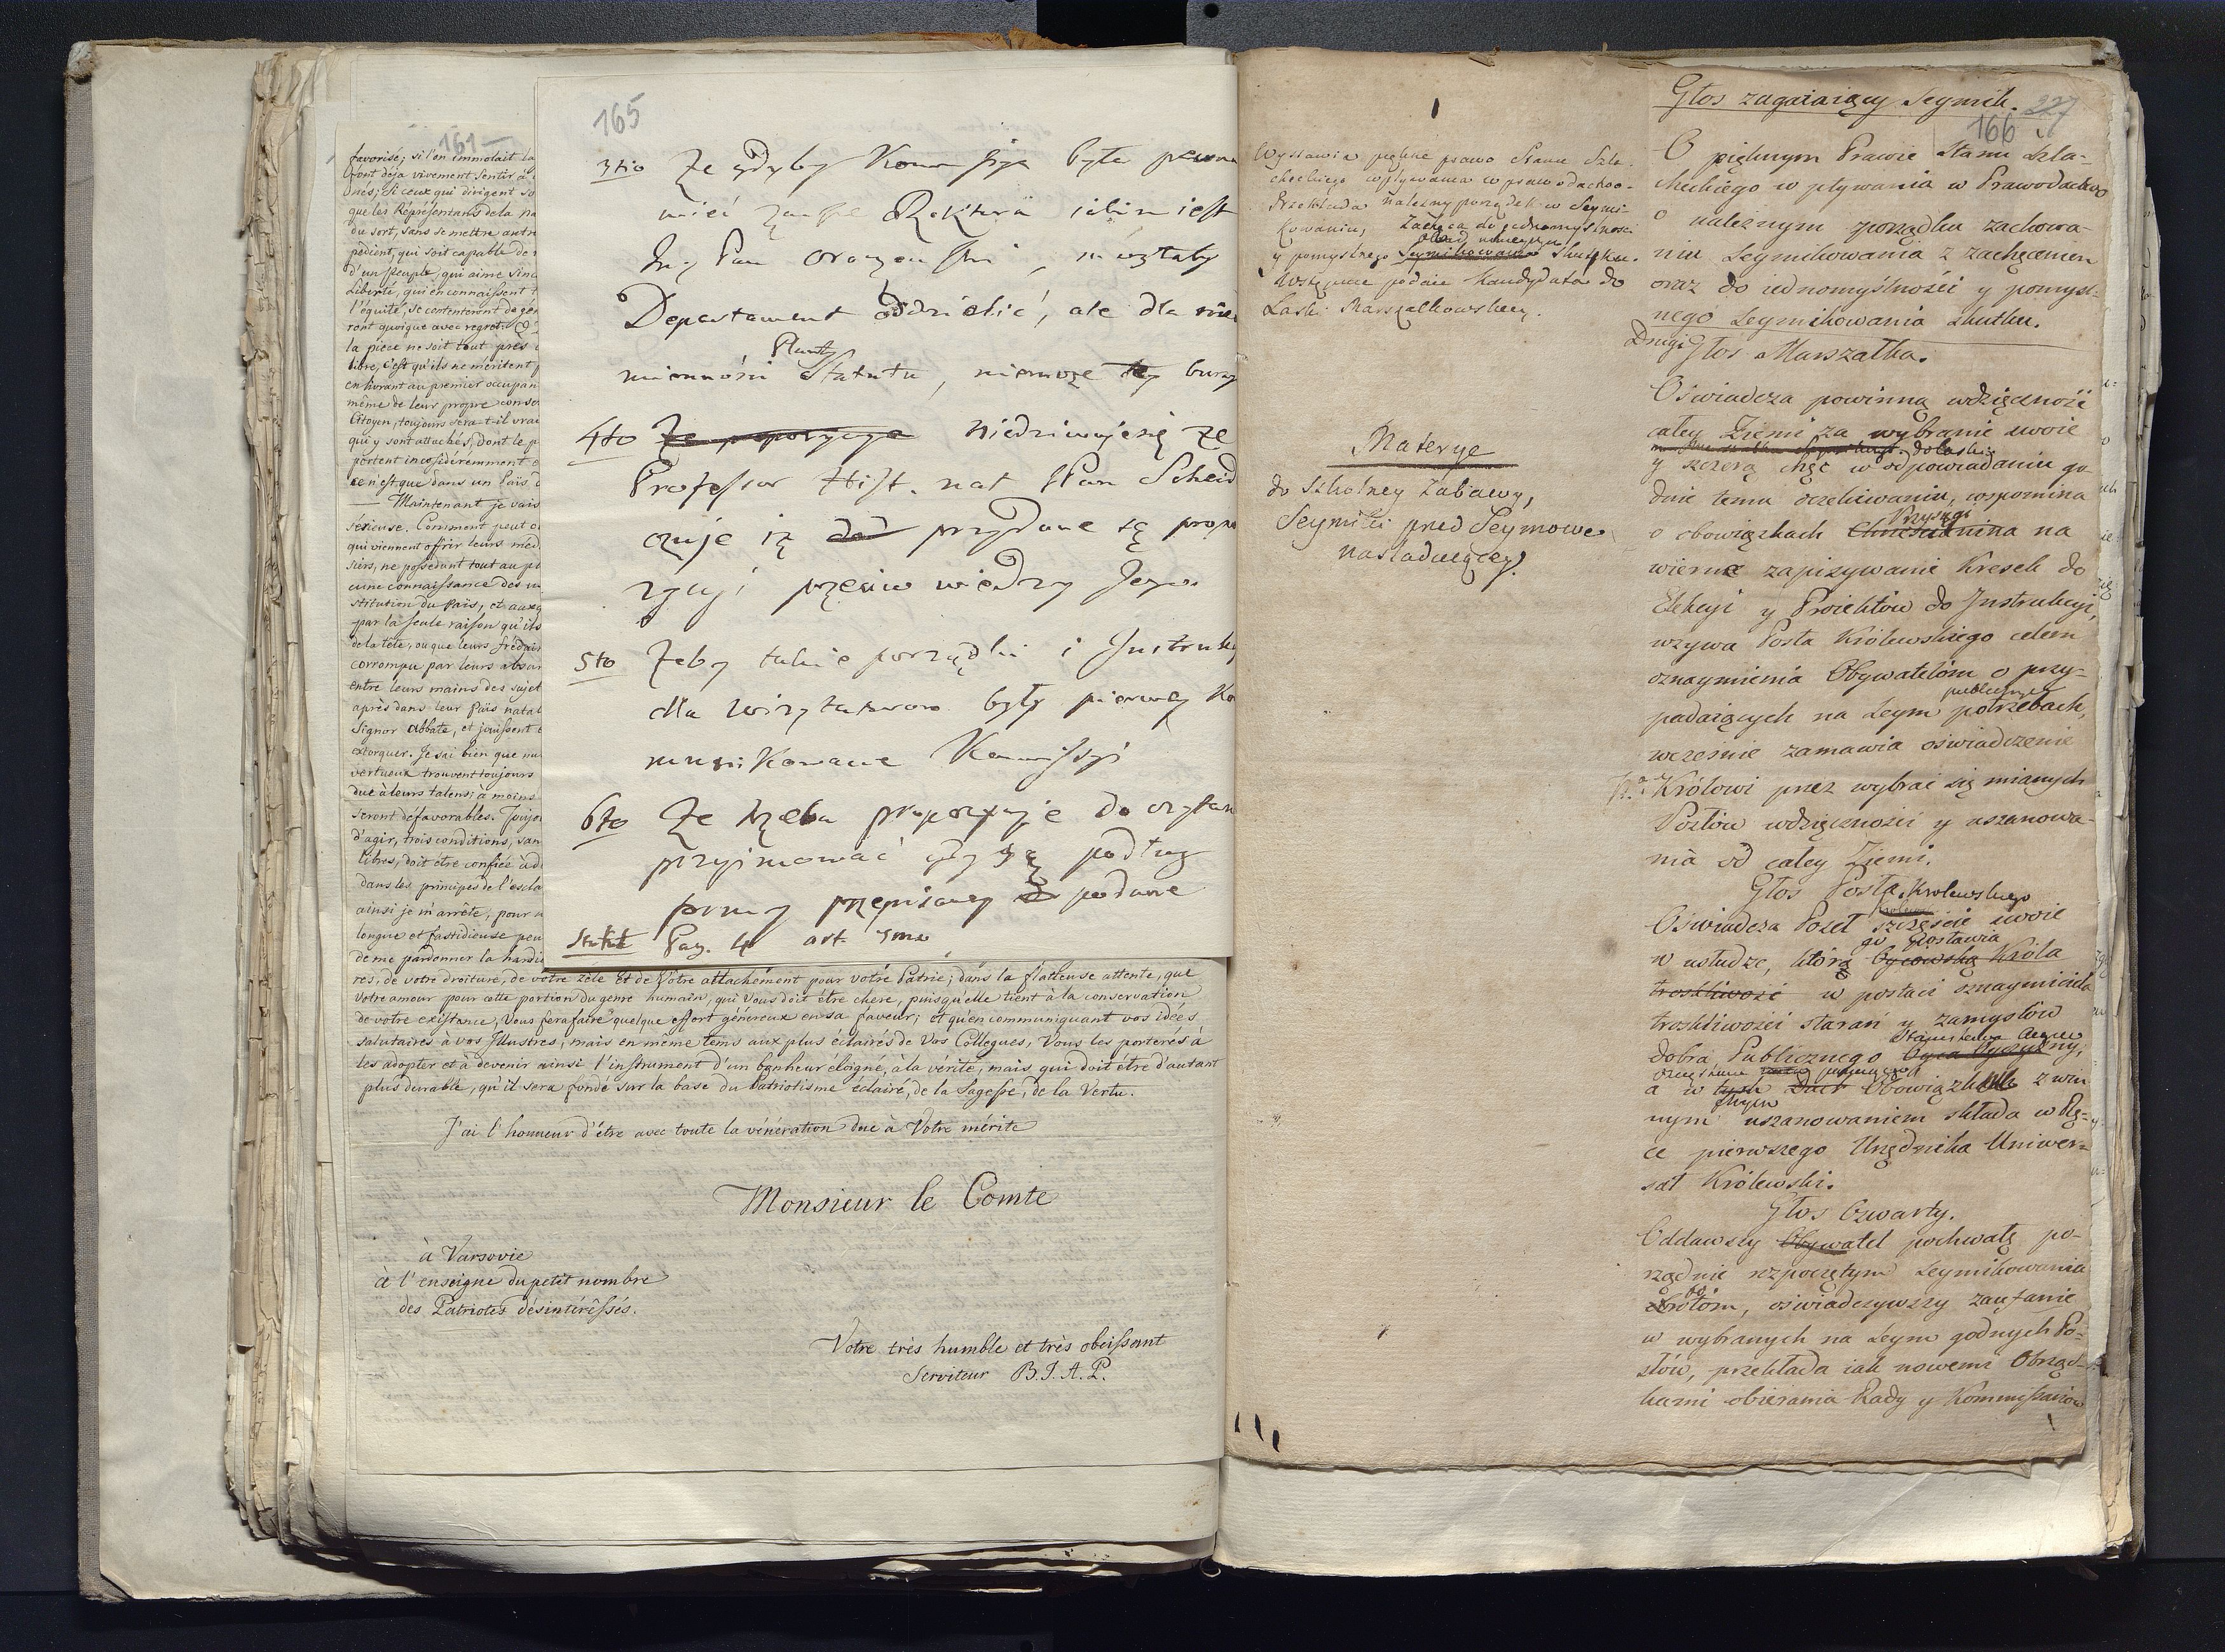 161
favorisé; si l'on immolait la
font déja vivement sentir à
nes; si ceux qui dirigent so
que les Réprésentans de la na
du sort, sans se mettre autre
pédient, qui soit capable de
d'un peuple, qui aime sinc
Liberté, qui en connaissent
l'équité, se contenteront de gé
ront quoique avec regret:
la piece ne soit tout près
libre, c'est qu'ils ne méritent p
en livrant au premier occupan
même de leur propre conser
Citoyen, toujours sera-t-il vrai
qui y sont attachés, dont le p
portent inconsidérémment
ce n'est que dans un Païs
— Maintenant je vais
sérieuse. Comment peut o
qui viennent offrir leurs méd
siers, ne possedant tout au pl
cune connaissance des m
stitution du Païs, et aux
par la seule raison qu'ils
de la tête, ou que leurs frédai
corrompu par leurs absur
entre leurs mains des sujet
après dans leur Païs natal
Signor abbate, et jouissent
extorquer. Je sai bien que nu
vertueux trouvent toujours
due à leurs talens; à moins
seront défavorables. Toujou
d'agir, trois conditions, san
libres, doit être confiée à d
dans les principes de l'escla
ainsi je m'arrête, pour n
longue et fastidieuse peu
de me pardonner la hardie
res, de votre droiture, de votre zèle et de Vôtre attachément pour votre Patrie; dans la flatteuse attente, que
Votre amour pour cette portion du genre humain, qui Vous doit être chere, puisqu'elle tient à la conservation
de votre existance, Vous fera faire quelque effort généreux en sa faveur; et qu'en communiquant vos idées
salutaires à vos Illustres; mais en même tems aux plus éclairés de Vos Collegues, Vous les porterés à
les adopter et à devenir ainsi l'instrument d'un bonheur éloigné, à la vérité, mais, qui doit être d'autant
plus durable, qu'il sera fondé sur la base du Patriotisme éclairé, de la Sagesse, de la Vertu.
J'ai l'honneur d'être avec toute la vénération due à Votre mérite
Monsieur le Comte
à Varsovie
à l'enseigne du petit nombre
des Patriotes désintéréssés.
Votre très humble et très obeissant
Serviteur B.J.A.P.
165
3tio Że gdyby Kommissya była pewna
mieć zawsze Rektora jakim iest
Jmć Pan Oraczewski, mógłaby
Departament oddzielić, ale dla nie
Planty
mienności Statutu, niemoże tey burzy
4to Że propozycya Niedziwuje się że
Professor Hist. nat Pan Scheid
czuje iż przydane są propo
zycyi przeciw wiedzy Jego.
5to Żeby takie porządki i Instrukc
dla Wizytatorow były pierwey Ko
munikowane Kommissyi
6to Że trzeba propozycyje do czytan
przyjmować gdy są podług
formy przepisaney podane
Statut Pag. 4 art. 5mo
1
Wystawia piękne prawo Stanu Szla-
checkiego wpływania w prawodactwo-
Przekłada należny porządek w Seymi-
kowaniu, Zachęca do jednomyślności
y pomyślnego Seymikowania Skutku.
Wstępnie podaie Kandydata do
Laski Marszałkowskiey.
Materye
do Szkolney Zabawy,
Seymiki pred Seymowe
nasladuiącey.
Głos zagaiaiący Seymik. 227
166
O pięknym Prawie Stanu Szla-
checkiego w pływania w Prawodactwo
o należnym porządku zachowa-
niu Seymikowania z zachęceniem
oraz do iednomyślności y pomyśl-
nego Seymikowania skutku.
Drugi Głos Marszałka.
Oświadcza powinną wdzięczność
całey Ziemi za wybranie swoie
do laski
y szczerą chęć w odpowiadaniu go-
dnie temu oczekiwaniu, wspomina
Przysięgi
o obowiązkach Chrześcianina na
wierne zapisywanie Kresek do
Elekcyi y Proiektów do Instrukcyi,
wzywa Posła Królewskiego celem
oznaymienia Obywatelom o przy-
publicznych
padaiących na Seym potrzebach,
wcześnie zamawia oświadczenie
Królowi przez wybrać się mianych
Posłów wdzięczności y uszanowa-
nia od całey Ziemi.
Głos Posła Krolewskiego
Oświadcza Poseł szczęście swoie
go Postawia
w usłudze, którą Oycowską Króla
troskliwość w postaci oznaymiciela
troskliwości starań y zamysłów
Stanisława Augu
dobra Publicznego Oyca Oyczyzny,
a w tych Obowiązku z win
nym uszanowaniem składa w Rę-
ce pierwszego Urzędnika Uniwer-
sał Królewski.
Głos Czwarty.
Oddawszy Obywatel pochwałę po-
rządnie rozpoczętym Seymikowania
krokóm, oświadczywszy zaufanie
w wybranych na Seym godnych Po-
słów, przekłada iak nowemi Obrząd-
kami obierania Rady y Kommissarzów